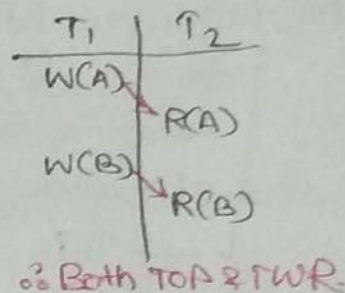 T1 T2
W(A)
R(A)
W(B)
R(B)
∴ Both TOP & TWR.